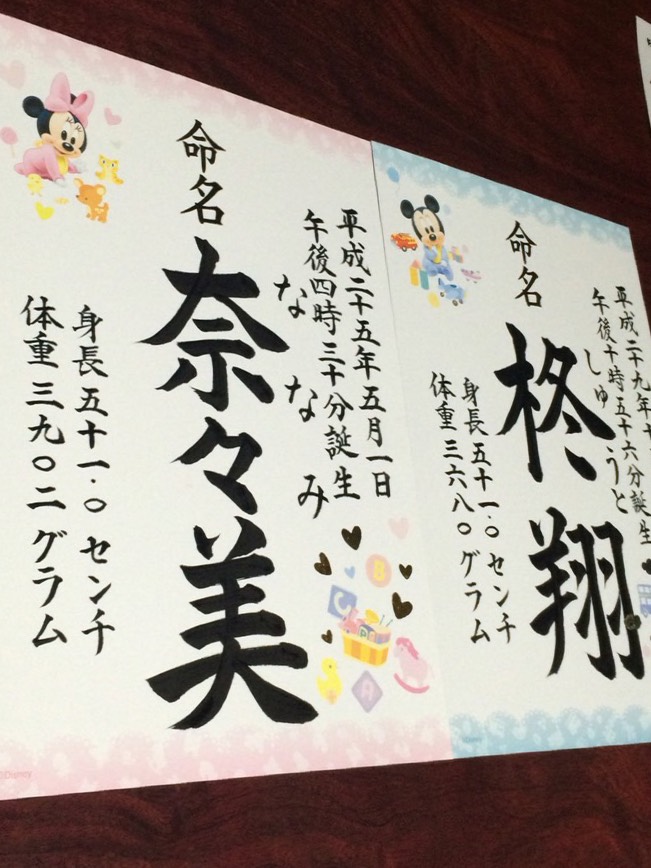 命名
奈々美
ななみ
平成二十五年五月一日
午後四時三十分誕生
身長五十一・〇センチ
体重三九〇二グラム
©Disney
命名
柊翔
しゅうと
平成二十九年十
午後十時五十六分誕生
身長五十一・〇センチ
体重三六八〇グラム